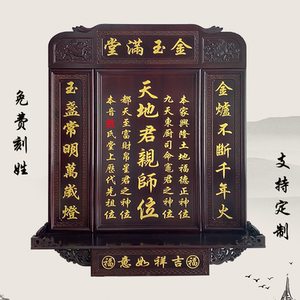 金玉滿堂
金爐不斷千年火
本家興隆土地福德正神位
九天東廚司命竈君之神位
天地君親師位
都天致富財帛星君之神位
本音氏堂上歷代先祖位
玉盞常明萬歲燈
福吉祥如意福
免費刻姓
支持定制